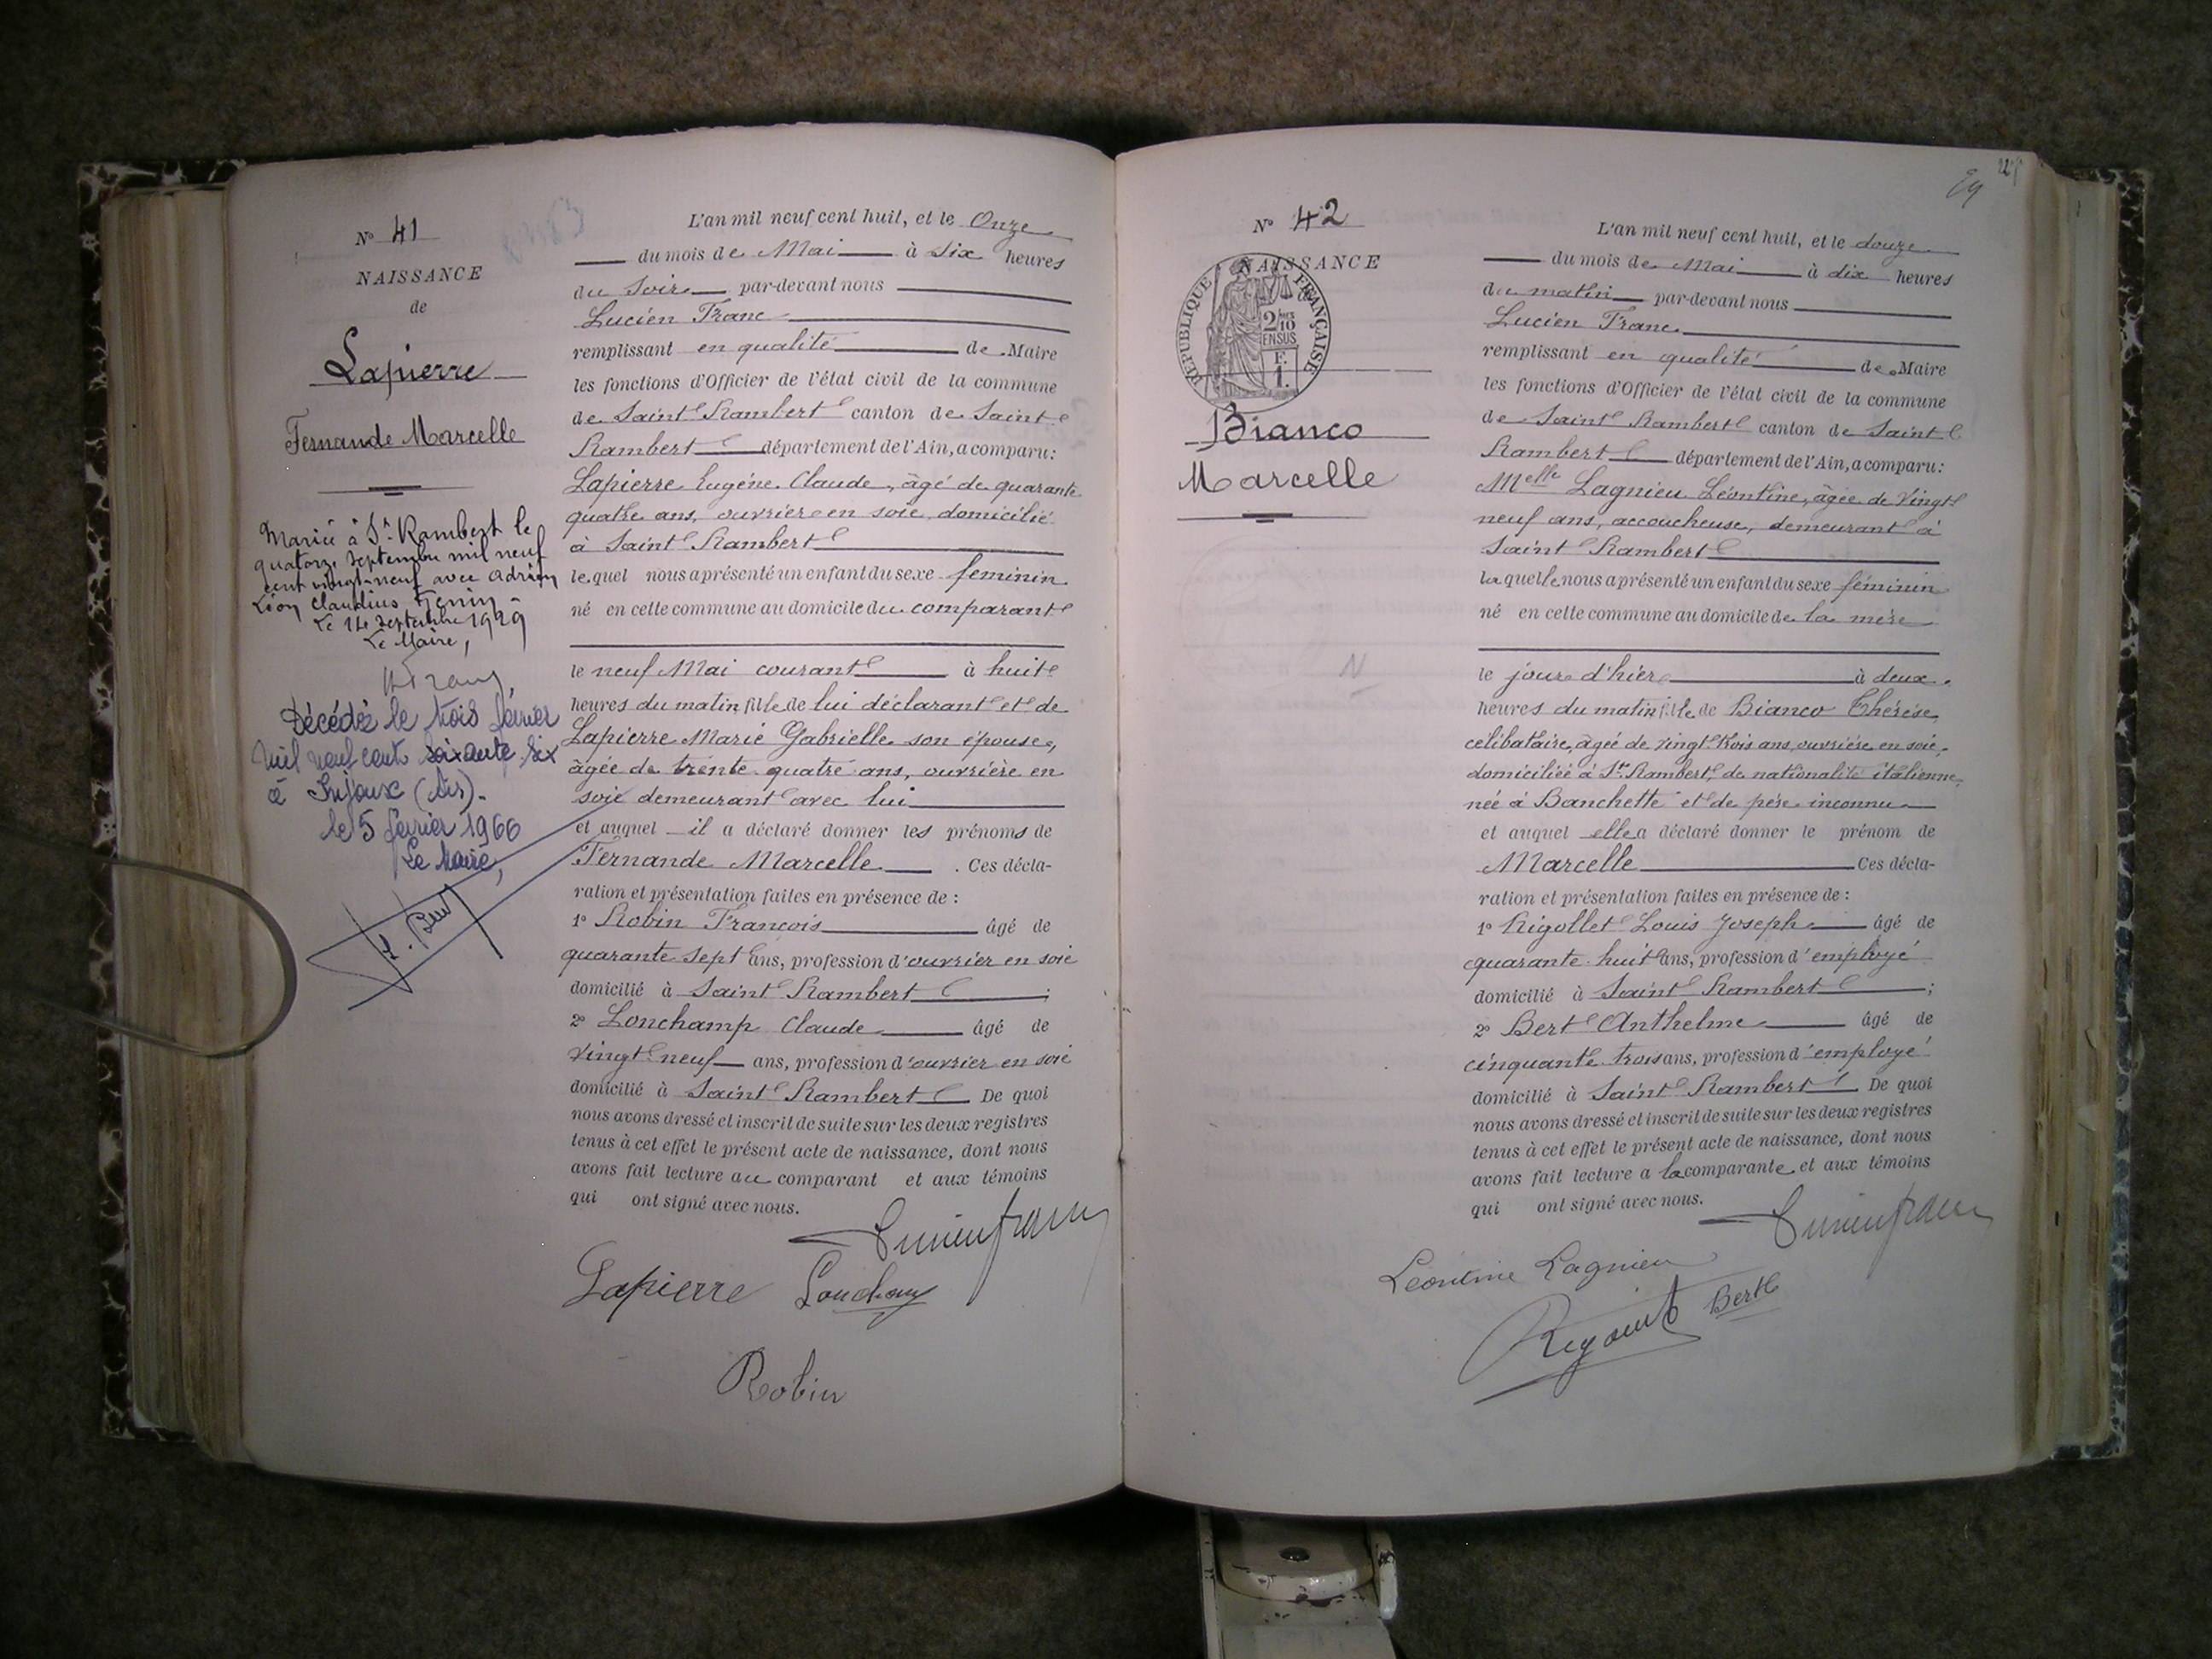 N° 41
NAISSANCE
de
Lapierre
Fernande Marcelle
Mariée à St. Rambert le
quatorze septembre mil neuf
cent vingt-neuf avec Adrien
Léon Claudius
Le 14 septembre 1929
Le Maire,
Décédée le trois février
mil neuf cent soixante six
à Injoux (Ain).
le 5 février 1966
Le Maire,
L'an mil neuf cent huit, et le Onze
du mois de Mai à six heures
du Soir par-devant nous
Lucien Franc
remplissant en qualité de Maire
les fonctions d'Officier de l'état civil de la commune
de Saint Rambert canton de Saint
Rambert département de l'Ain, a comparu:
Lapierre Eugène Claude, âgé de quarante
quatre ans, ouvrier en soie, domicilié
à Saint Rambert
lequel nous a présenté un enfant du sexe féminin
né en cette commune au domicile du comparant
le neuf Mai courant à huit
heures du matin fille de lui déclarant et de
Lapierre Marie Gabrielle son épouse,
âgée de trente quatre ans, ouvrière en
soie demeurant avec lui
et auquel il a déclaré donner les prénoms de
Fernande Marcelle. Ces décla-
ration et présentation faites en présence de :
1° Robin François âgé de
quarante sept ans, profession d'ouvrier en soie
domicilié à Saint Rambert ;
2° Lonchamp Claude âgé de
vingt neuf ans, profession d'ouvrier en soie
domicilié à Saint Rambert De quoi
nous avons dressé et inscrit de suite sur les deux registres
tenus à cet effet le présent acte de naissance, dont nous
avons fait lecture au comparant et aux témoins
qui ont signé avec nous.
Lucien Franc
Lapierre Lonchamp
Robin
N° 42
NAISSANCE
RÉPUBLIQUE FRANÇAISE
2/10
EN SUS
F.
1.
Bianco
Marcelle
N
L'an mil neuf cent huit, et le douze
du mois de Mai à dix heures
du matin par-devant nous
Lucien Franc
remplissant en qualité de Maire
les fonctions d'Officier de l'état civil de la commune
de Saint Rambert canton de Saint
Rambert département de l'Ain, a comparu:
Melle Lagnieu Léontine, âgée de vingt
neuf ans, accoucheuse, demeurant à
Saint Rambert
laquelle nous a présenté un enfant du sexe féminin
né en cette commune au domicile de la mère
le jour d'hier à deux
heures du matin fille de Bianco Thérèse,
célibataire, âgée de vingt trois ans, ouvrière en soie,
domiciliée à St. Rambert, de nationalité italienne
née à Banchette et de père inconnu
et auquel elle a déclaré donner le prénom de
Marcelle Ces décla-
ration et présentation faites en présence de :
1° Rigollet Louis Joseph âgé de
quarante huit ans, profession d'employé
domicilié à Saint Rambert ;
2° Bert Anthelme âgé de
cinquante trois ans, profession d'employé
domicilié à Saint Rambert De quoi
nous avons dressé et inscrit de suite sur les deux registres
tenus à cet effet le présent acte de naissance, dont nous
avons fait lecture a la comparante et aux témoins
qui ont signé avec nous.
Lucien Franc
Léontine Lagnieu
Bert